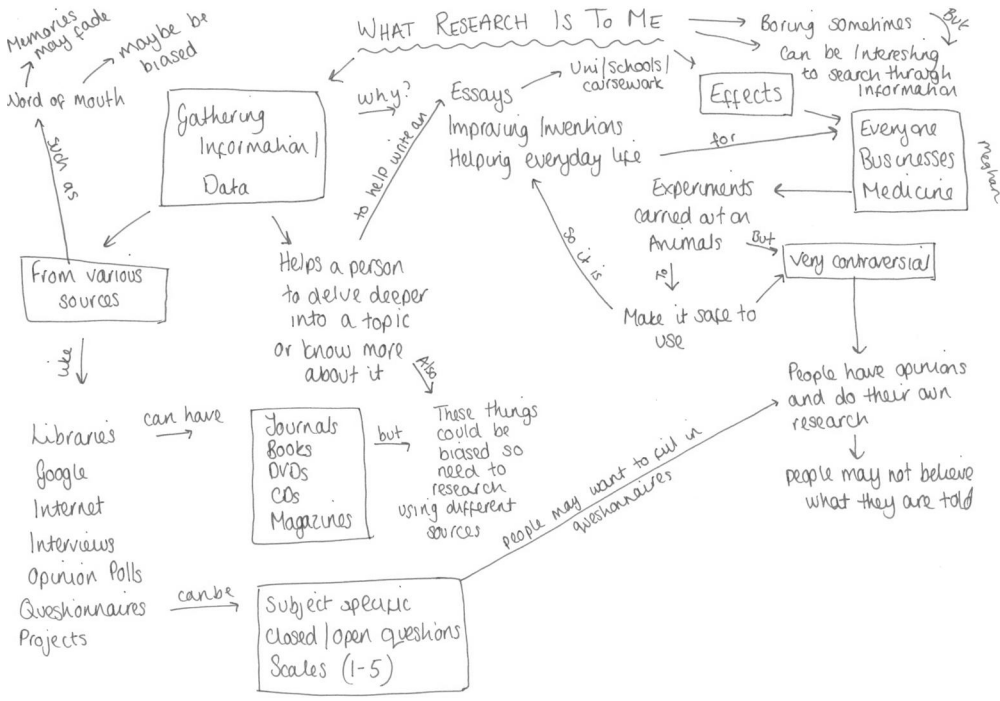 WHAT RESEARCH IS TO ME
Boring sometimes
But
can be Interesting
to search through
Information
Memories
may fade
maybe be
biased
Word of mouth
such as
Gathering
Information/
Data
why?
Essays
Uni/Schools/
coursework
Improving Inventions
Helping everyday life
to help write an
for
Effects
Everyone
Businesses
Medicine
Meghan
Experiments
carried out on
Animals
But
very controversial
to
Make it safe to
use
so it is
From various
sources
Helps a person
to delve deeper
into a topic
or know more
about it
Also
like
Libraries
Google
Internet
Interviews
Opinion Polls
Questionnaires
Projects
can have
Journals
Books
DVDs
CDs
Magazines
but
These things
could be
biased so
need to
research
using different
sources
can be
Subject specific
Closed/open questions
Scales (1-5)
people may want to fill in
questionnaires
People have opinions
and do their own
research
people may not believe
what they are told